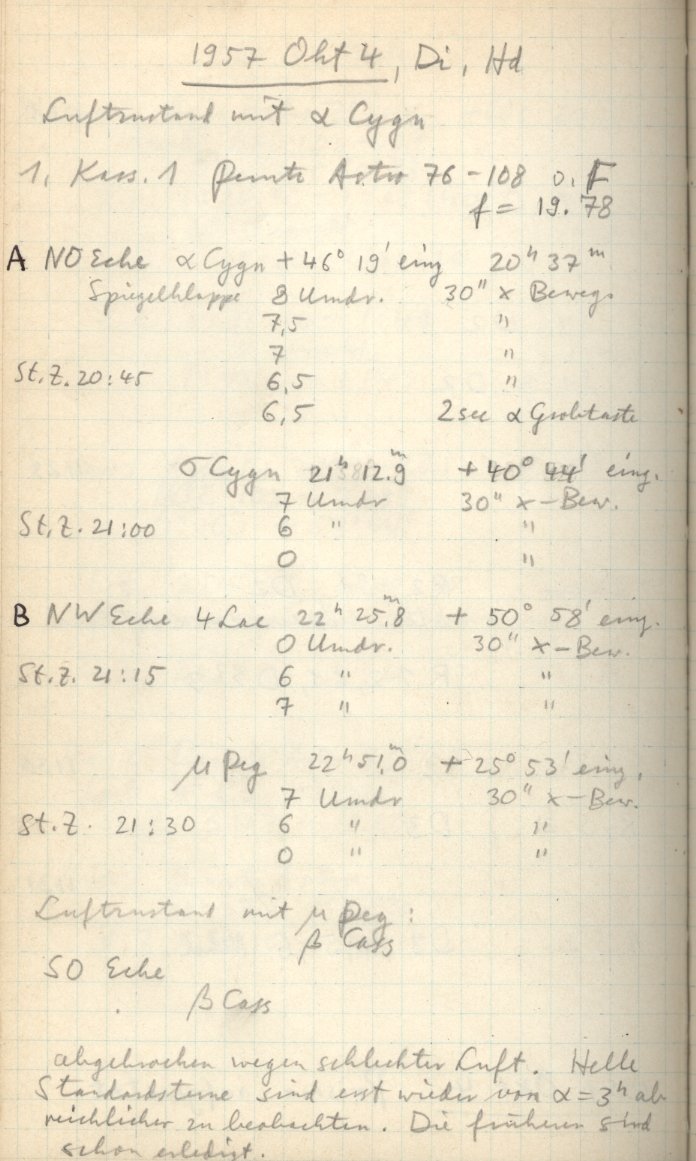 1957 Okt 4, Di, Hd
Luftzustand mit α Cygn
1. Kass. 1 Perutz Astro 76-108 o. F
f = 19.78
A NO Ecke α Cygn +46° 19' eing 20ʰ 37ᵐ
Spiegelklappe 8 Umdr. 30" x Bewegs
7,5 "
7 "
St.Z. 20:45 6,5 "
6,5 2 sec α Grobtaste
σ Cygn 21ʰ 12.ᵐ9 +40° 44' eing.
7 Umdr 30" x-Bew.
St.Z. 21:00 6 " "
0 "
B NW Ecke 4 Lac 22ʰ 25.ᵐ8 + 50° 58' eing.
0 Umdr. 30" x-Bew.
St.Z. 21:15 6 " "
7 " "
μ Peg 22ʰ 51.ᵐ0 +25° 53' eing.
7 Umdr 30" x-Bew.
St.Z. 21:30 6 " "
0 " "
Luftzustand mit μ Peg :
β Cass
SO Ecke
β Cass
abgebrochen wegen schlechter Luft. Helle
Standardsterne sind erst wieder von α=3ʰ ab
reichlicher zu beobachten. Die früheren sind
schon erledigt.